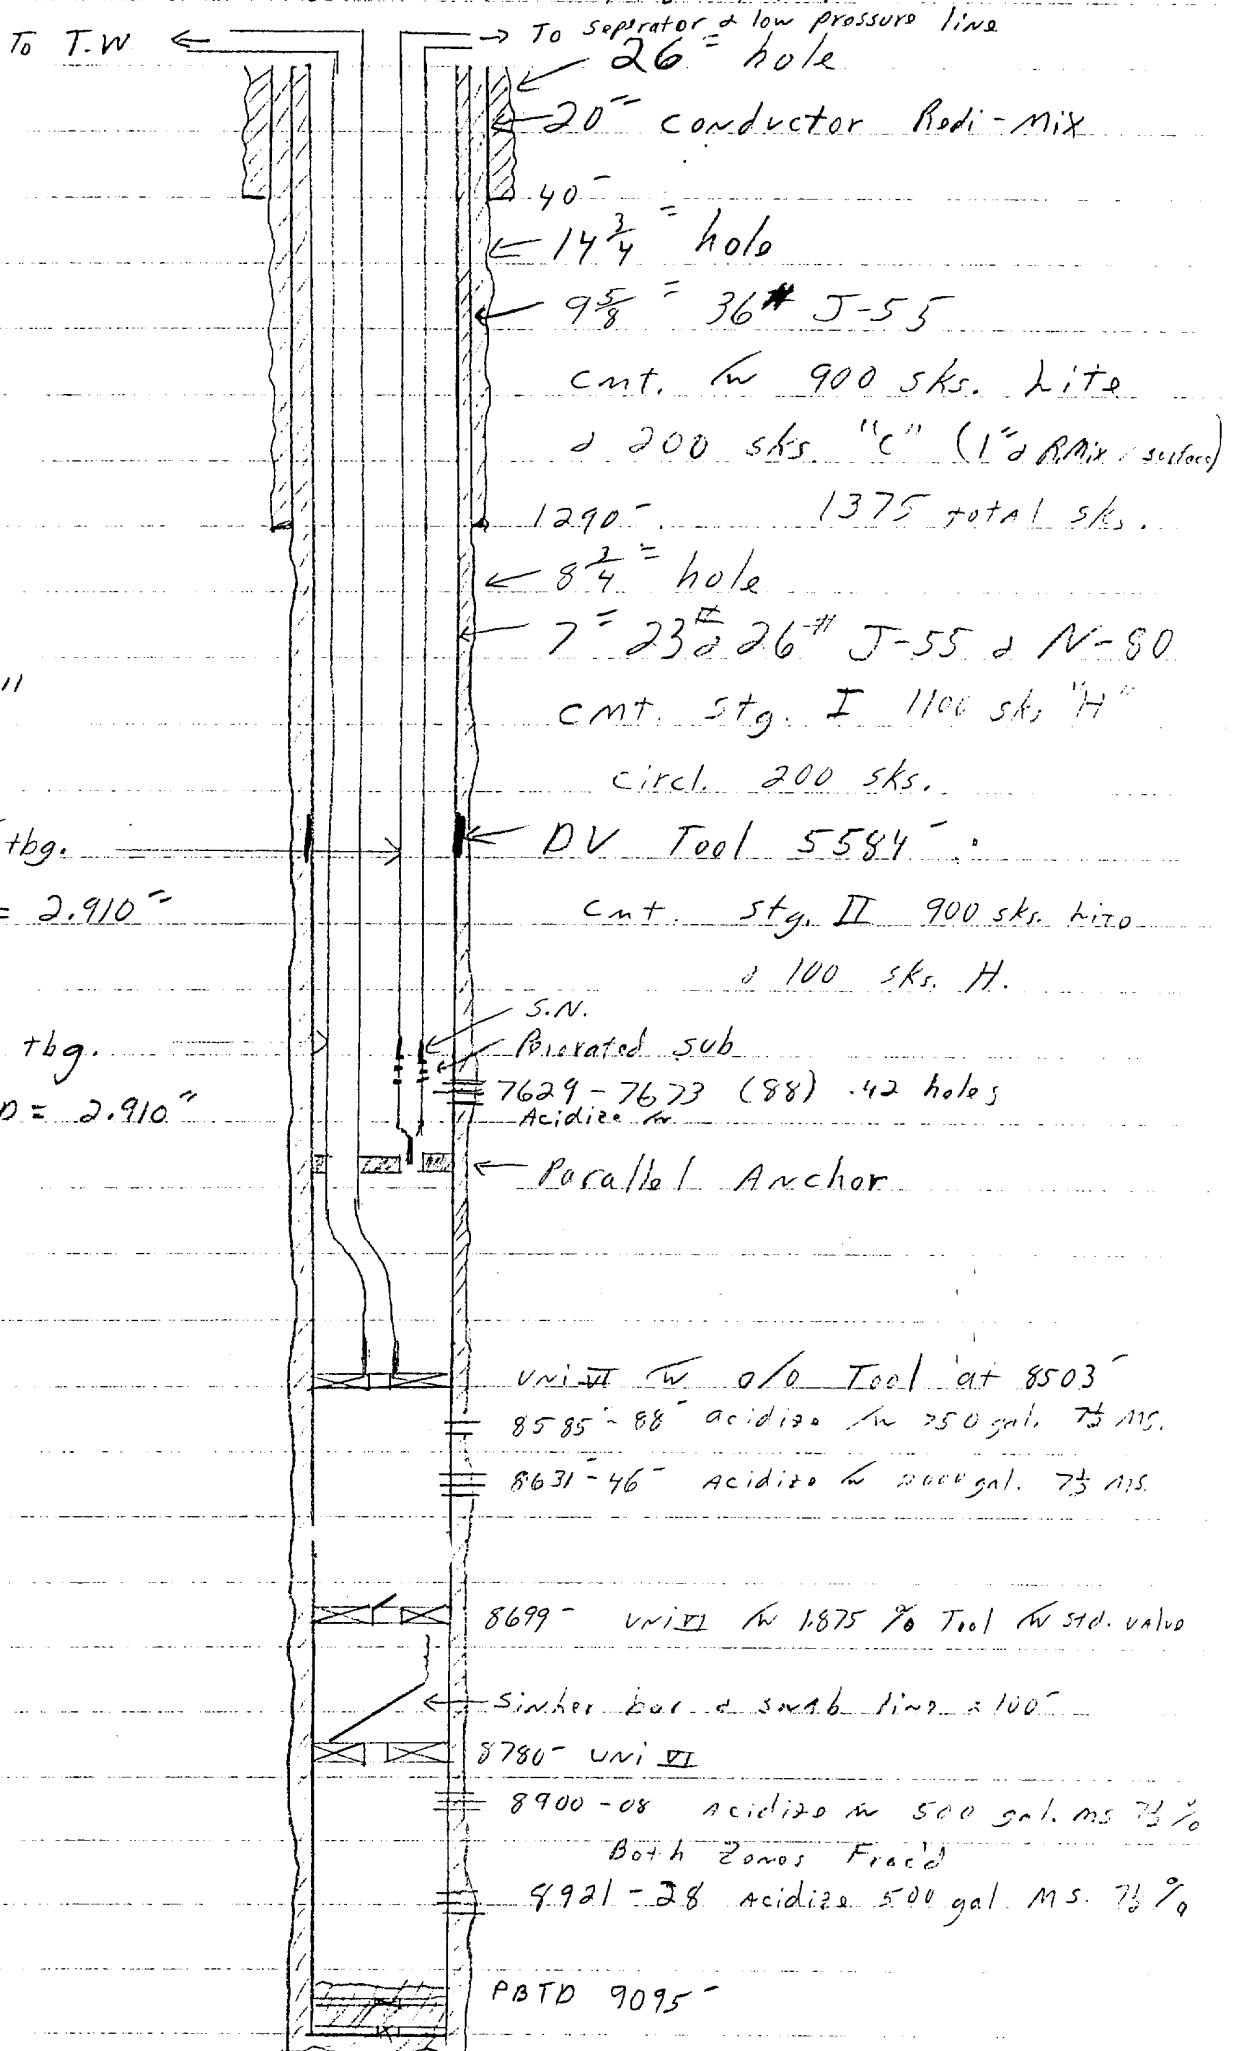 To T.W
To separator & low pressure line
26" hole
20" conductor Redi-Mix
40'
14 3/4" hole
9 5/8" 36# J-55
cmt. w/ 900 sks. Lite
& 200 sks "C" (1" & RMix surface)
1290' 1375 total sks.
8 3/4" hole
7" 23# & 26# J-55 & N-80
"
cmt. stg. I 1100 sks "H"
circl. 200 sks.
tbg.
DV Tool 5584'
= 2.910"
cmt. stg. II 900 sks. Lite
& 100 sks. H.
S.N.
tbg.
Perorated sub
7629-7673 (88) .42 holes
D = 2.910"
Acidize w/
Parallel Anchor
Uni VI w/ o/o Tool at 8503'
8585'-88' acidize w/ 750 gal. 7½ MS.
8631-46' Acidize w/ 2000 gal. 7½ MS.
8699' Uni VI w/ 1.875 o/o Tool w/ std. valve
Sinker bar & swab line ≈ 100'
8780' Uni VI
8900-08 Acidize w/ 500 gal. MS 7½%
Both Zones Frac'd
8921-28 Acidize 500 gal MS. 7½%
PBTD 9095'